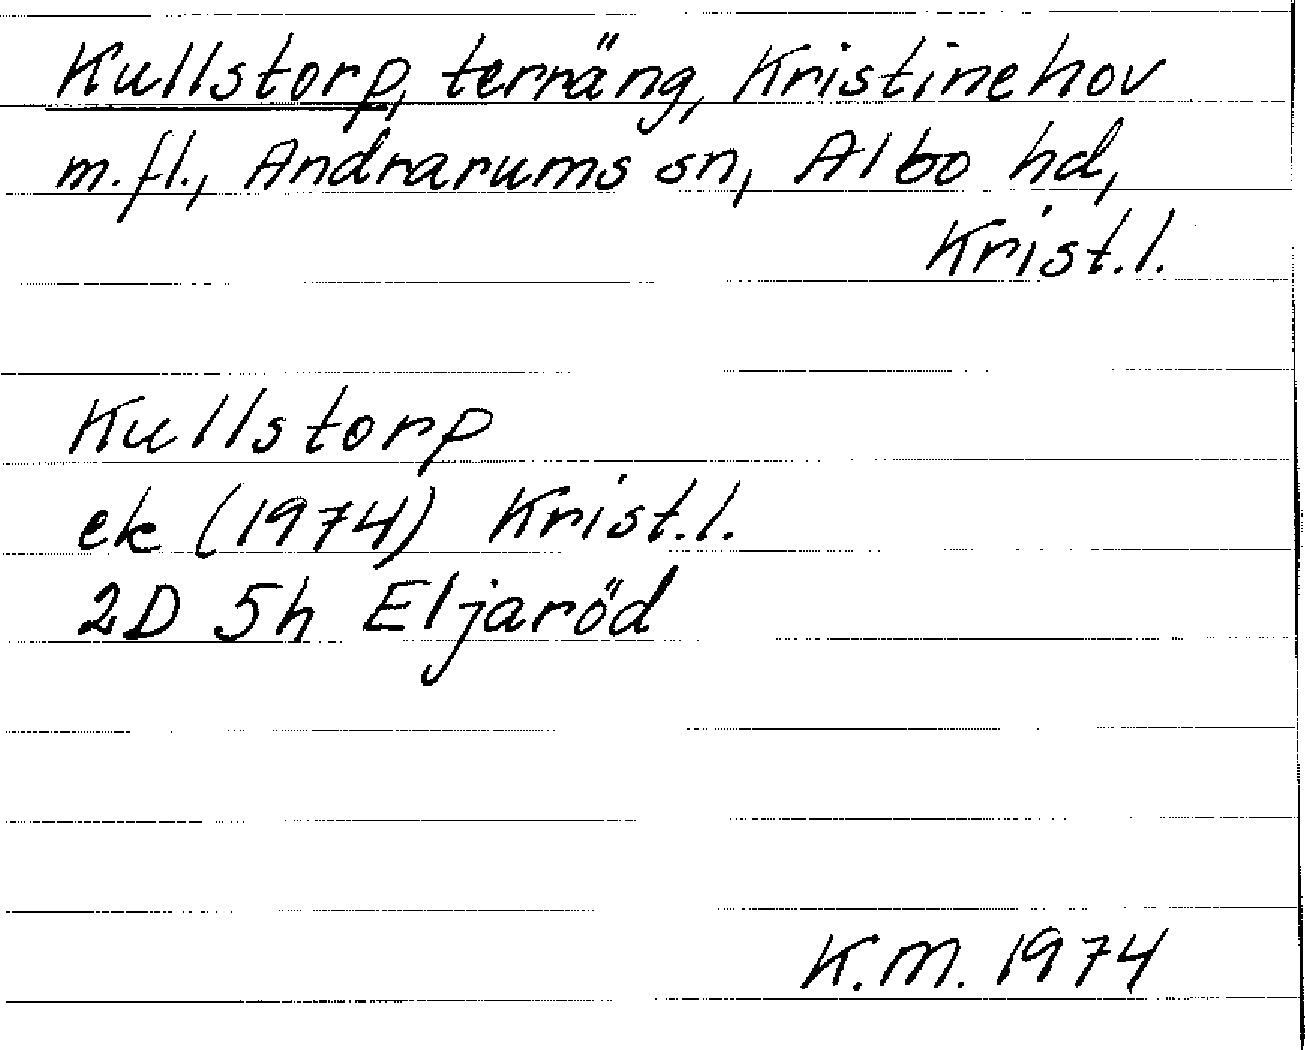 Kullstorp, terräng, Kristinehov
m.fl., Andrarums sn, Albo hd,
Krist.l.
Kullstorp
ek (1974) Krist.l.
2D 5h Eljaröd
K.M. 1974